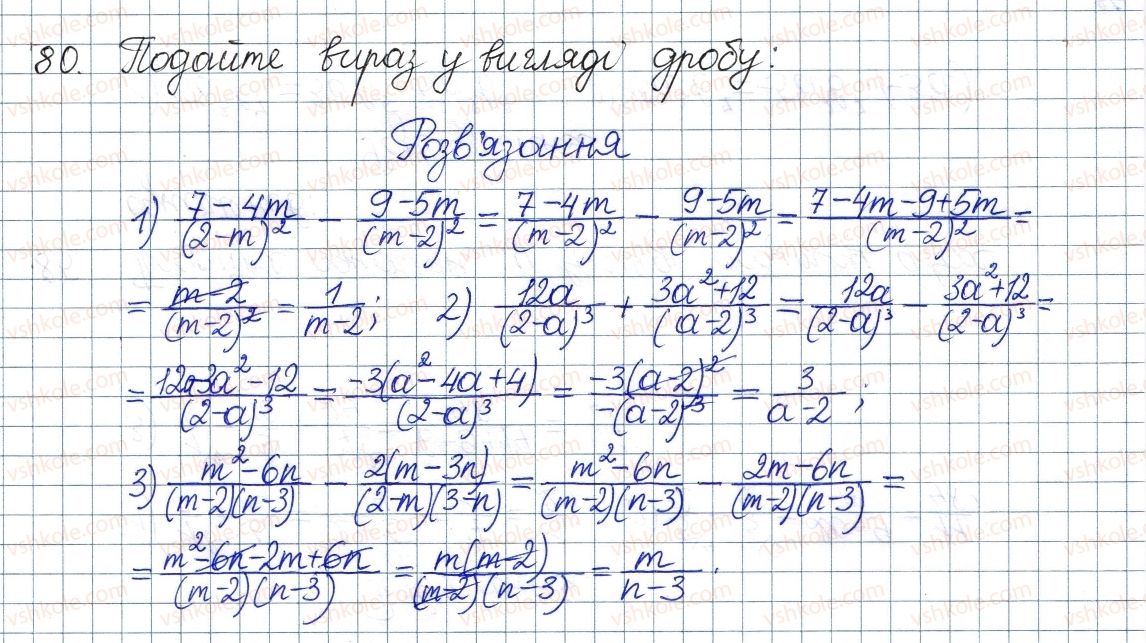 80. Подайте вираз у вигляді дробу:
Розв'язання
1) (7-4m)/(2-m)² - (9-5m)/(m-2)² = (7-4m)/(m-2)² - (9-5m)/(m-2)² = (7-4m-9+5m)/(m-2)² =
= (m-2)/(m-2)² = 1/(m-2); 2) 12a/(2-a)³ + (3a²+12)/(a-2)³ = 12a/(2-a)³ - (3a²+12)/(2-a)³ =
= (12a-3a²-12)/(2-a)³ = -3(a²-4a+4)/(2-a)³ = -3(a-2)²/-(a-2)³ = 3/(a-2);
3) (m²-6n)/(m-2)(n-3) - 2(m-3n)/(2-m)(3-n) = (m²-6n)/(m-2)(n-3) - (2m-6n)/(m-2)(n-3) =
= (m²-6n-2m+6n)/(m-2)(n-3) = m(m-2)/(m-2)(n-3) = m/(n-3).